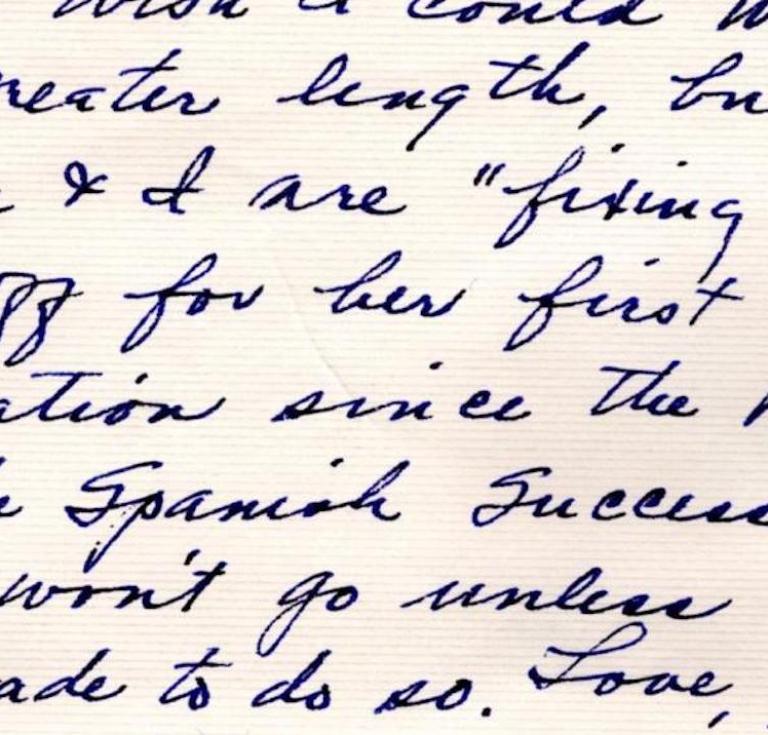 wish I could
reater length, bu
& I are "fixing
for her first
ation since the
Spanish Success
won't go unless
ade to do so. Love,